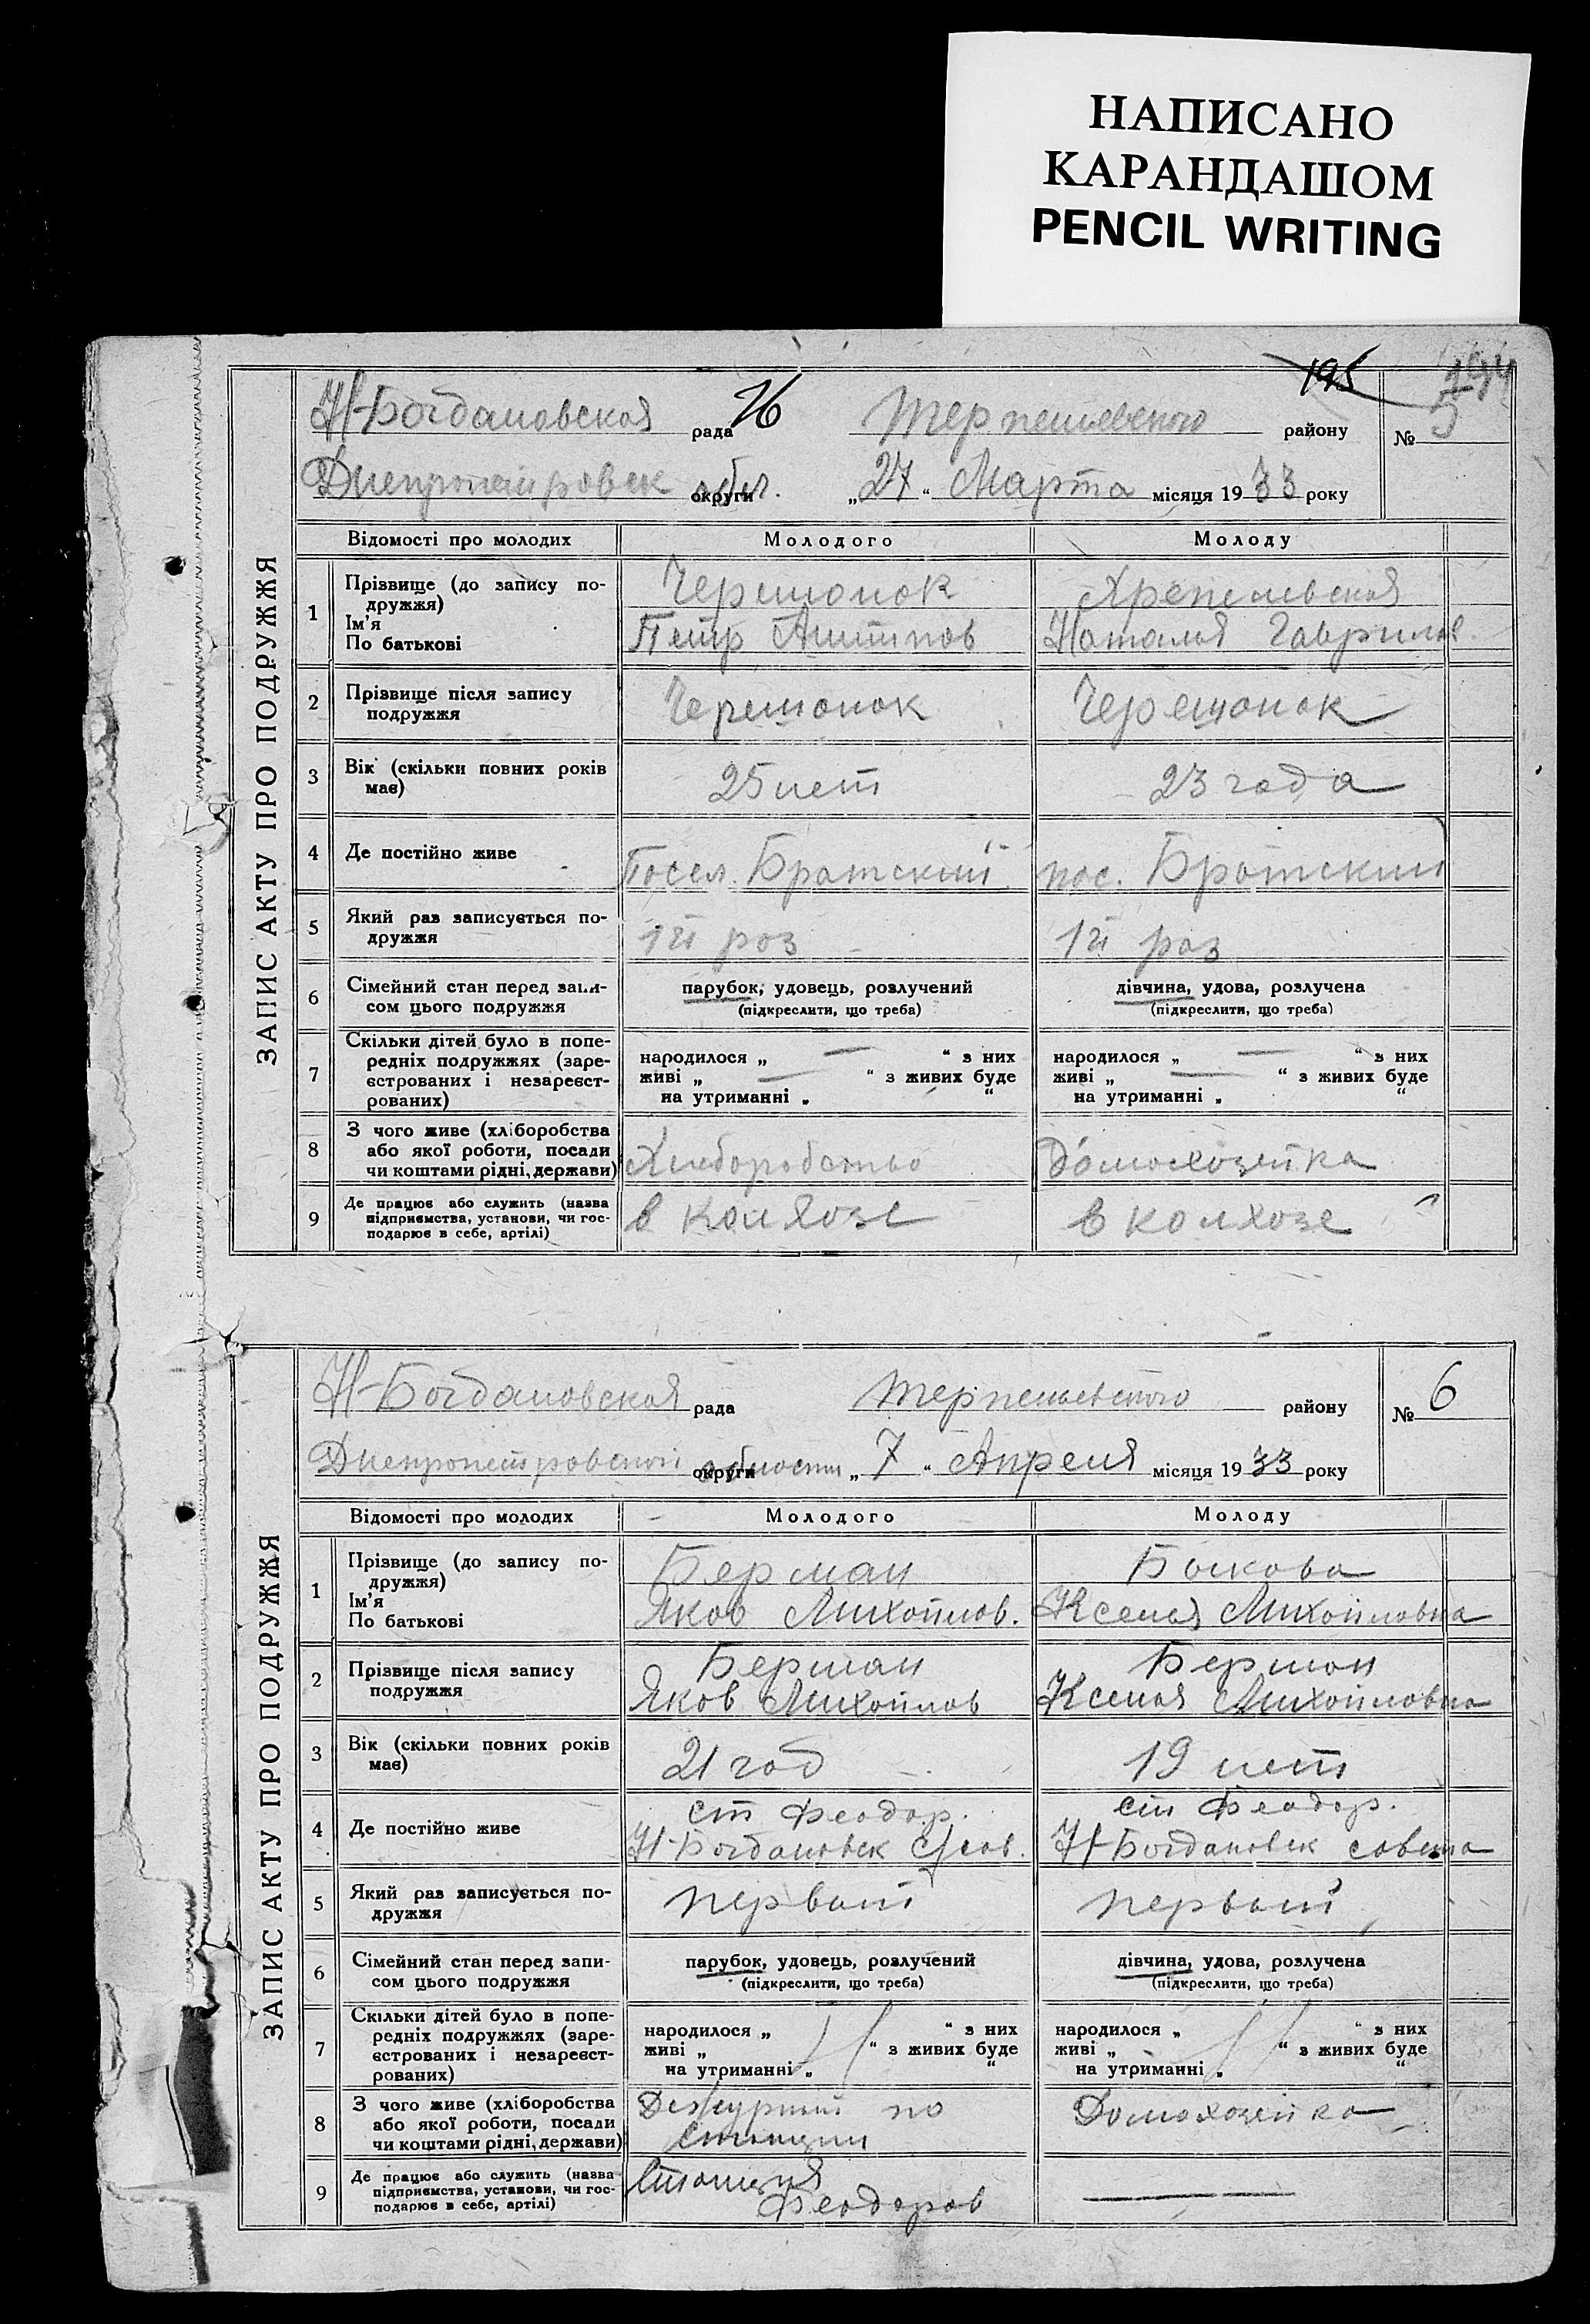 НАПИСАНО
КАРАНДАШОМ
PENCIL WRITING
195
194
ЗАПИС АКТУ ПРО ПОДРУЖЖЯ
Н-Богдановская рада 76 Терпеньевского району № 5
Днепропетровск округи обл. „27“ Марта місяця 1933 року
Відомості про молодих Молодого Молоду
1 Прізвище (до запису по-
дружжя)
Ім'я
По батькові
Черешонок
Петр Антипов
Наталья Гаврилов.
2 Прізвище після запису
подружжя
Черешонок Черешонок
3 Вік (скільки повних років
має)
25 лет 23 года
4 Де постійно живе Посел. Братский пос. Братский
5 Який раз записується по-
дружжя
1й раз 1й раз
6 Сімейний стан перед запи-
сом цього подружжя
парубок, удовець, розлучений
(підкреслити, що треба)
дівчина, удова, розлучена
(підкреслити, що треба)
7 Скільки дітей було в попе-
редніх подружжях (заре-
єстрованих і незареєст-
рованих)
народилося „ — “ з них
живі „ — “ з живих буде
на утриманні „ “
народилося „ — “ з них
живі „ — “ з живих буде
на утриманні „ “
8 З чого живе (хліборобства
або якої роботи, посади
чи коштами рідні, держави)
Хлеборобство Домохозяйка
9 Де працює або служить (назва
підприємства, установи, чи гос-
подарює в себе, артілі)
в колхозе в колхозе
ЗАПИС АКТУ ПРО ПОДРУЖЖЯ
Н-Богдановская рада Терпеньевского району № 6
Днепропетровской округи области „7“ Апреля місяця 1933 року
Відомості про молодих Молодого Молоду
1 Прізвище (до запису по-
дружжя)
Ім'я
По батькові
Берман
Яков Михайлов.
Быкова
Ксения Михайловна
2 Прізвище після запису
подружжя
Берман
Яков Михайлов
Берман
Ксения Михайловна
3 Вік (скільки повних років
має)
21 год 19 лет
4 Де постійно живе
ст Феодор.
Н-Богдановск с/сов.
ст Феодор.
Н-Богдановск совета
5 Який раз записується по-
дружжя
первый первый
6 Сімейний стан перед запи-
сом цього подружжя
парубок, удовець, розлучений
(підкреслити, що треба)
дівчина, удова, розлучена
(підкреслити, що треба)
7 Скільки дітей було в попе-
редніх подружжях (заре-
єстрованих і незареєст-
рованих)
народилося „ “ з них
живі „ “ з живих буде
на утриманні „ “
народилося „ “ з них
живі „ “ з живих буде
на утриманні „ “
8 З чого живе (хліборобства
або якої роботи, посади
чи коштами рідні, держави)
Дежурный по
станции
Домохозяйка
9 Де працює або служить (назва
підприємства, установи, чи гос-
подарює в себе, артілі)
Станция
Феодоров
—